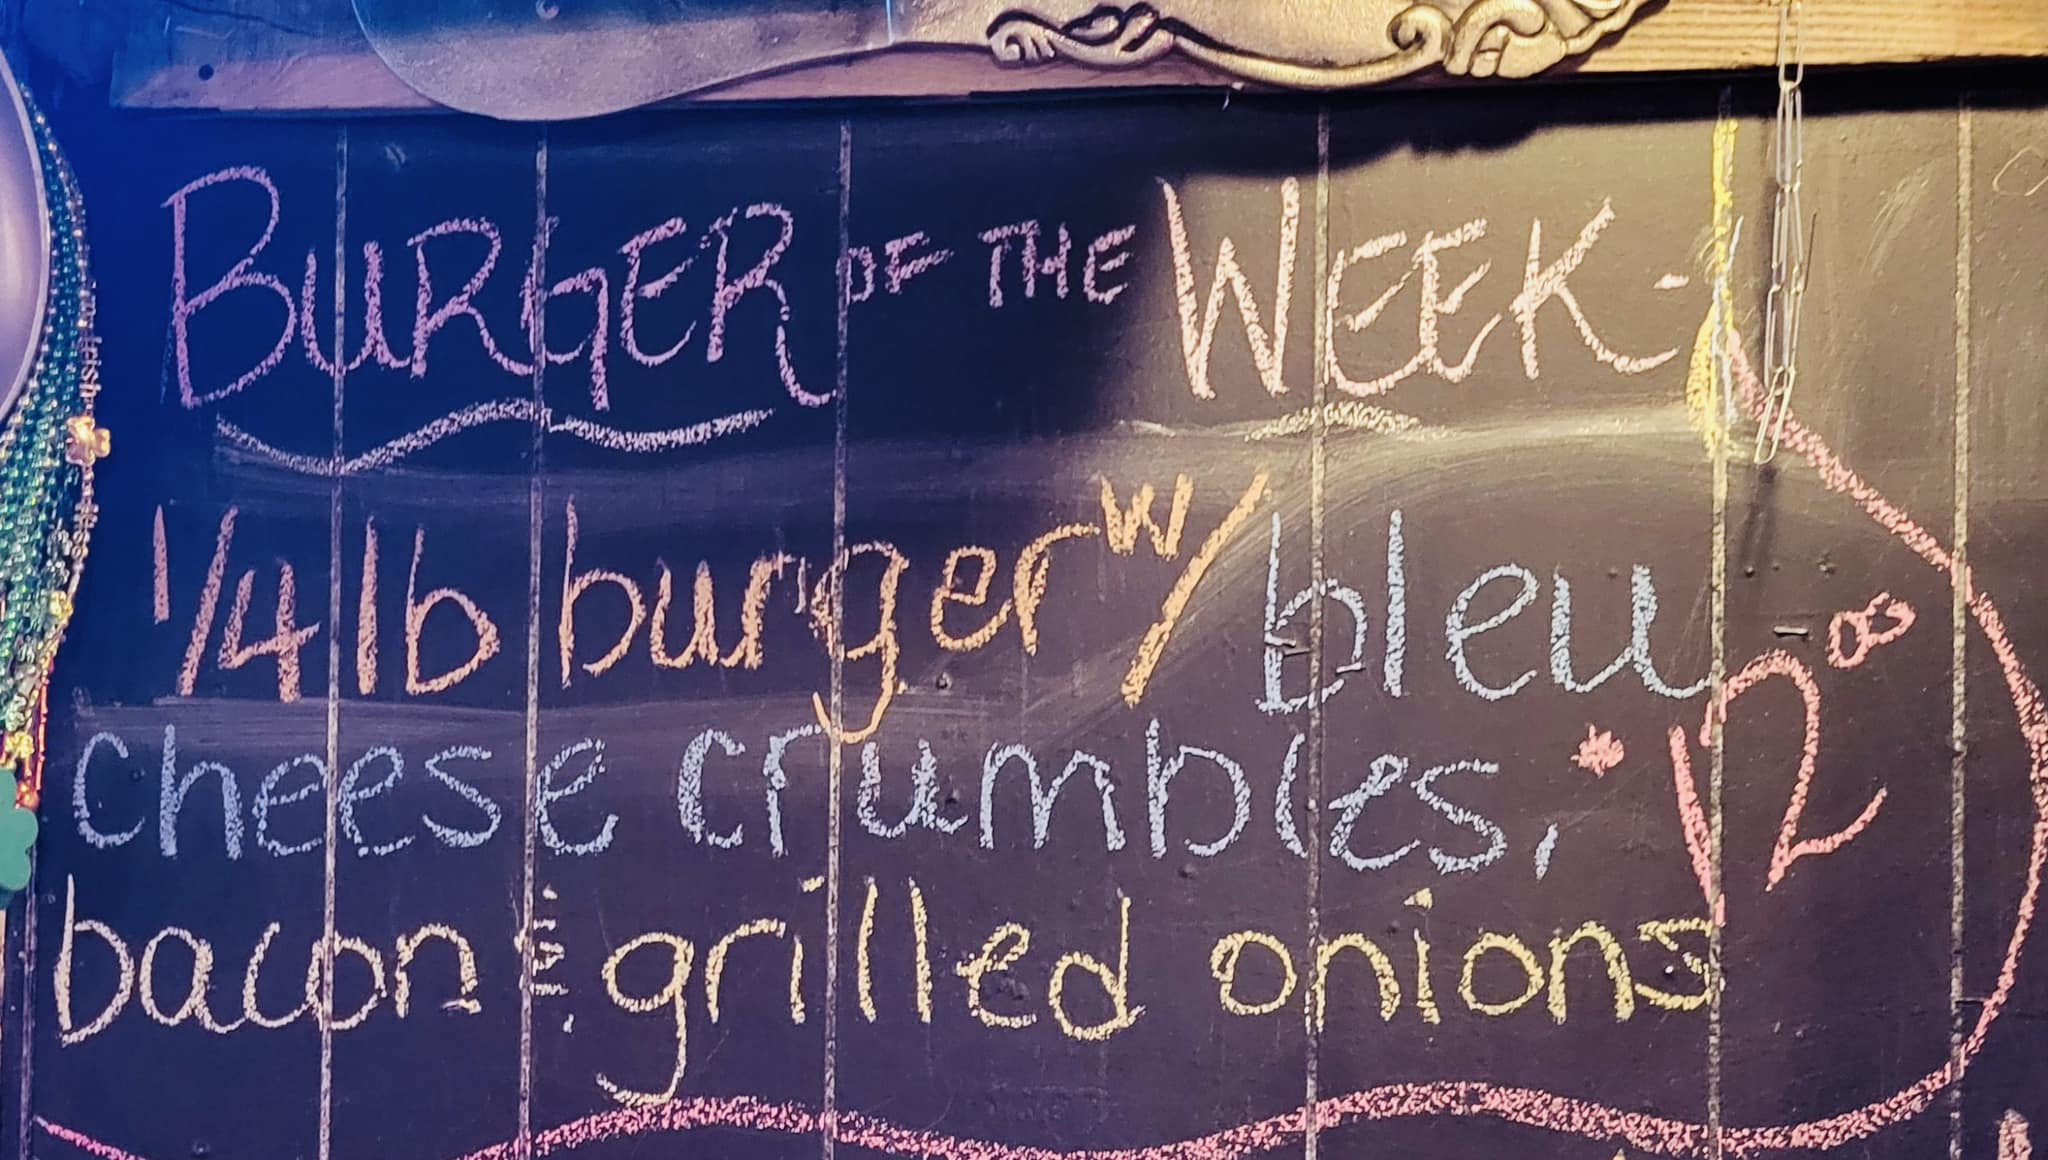 BURGER OF THE WEEK -
1/4 lb burger w/ bleu
cheese crumbles,
bacon & grilled onions
12⁰⁰